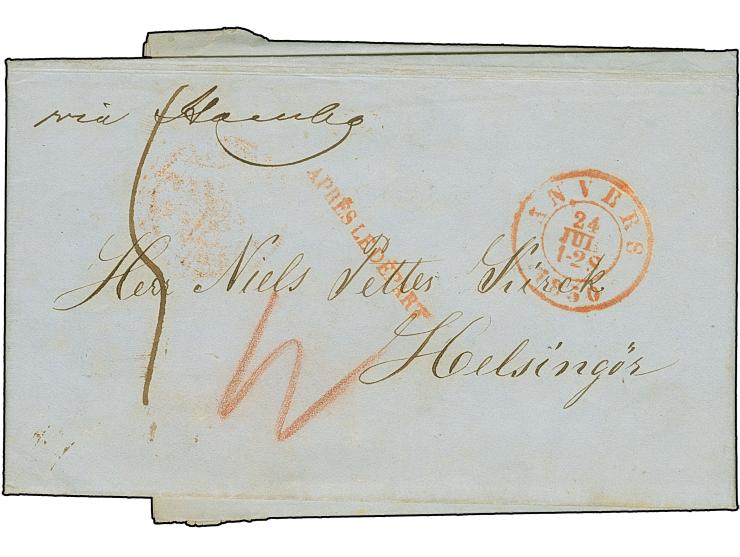 via Hambg
APRÈS LE DÉPART
ANVERS
24
JUL
1-2S
1856
Herr Niels Petter Kirck
Helsingör